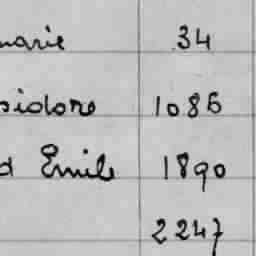 marie 34
sidore 1086
d Emile 1890
2247